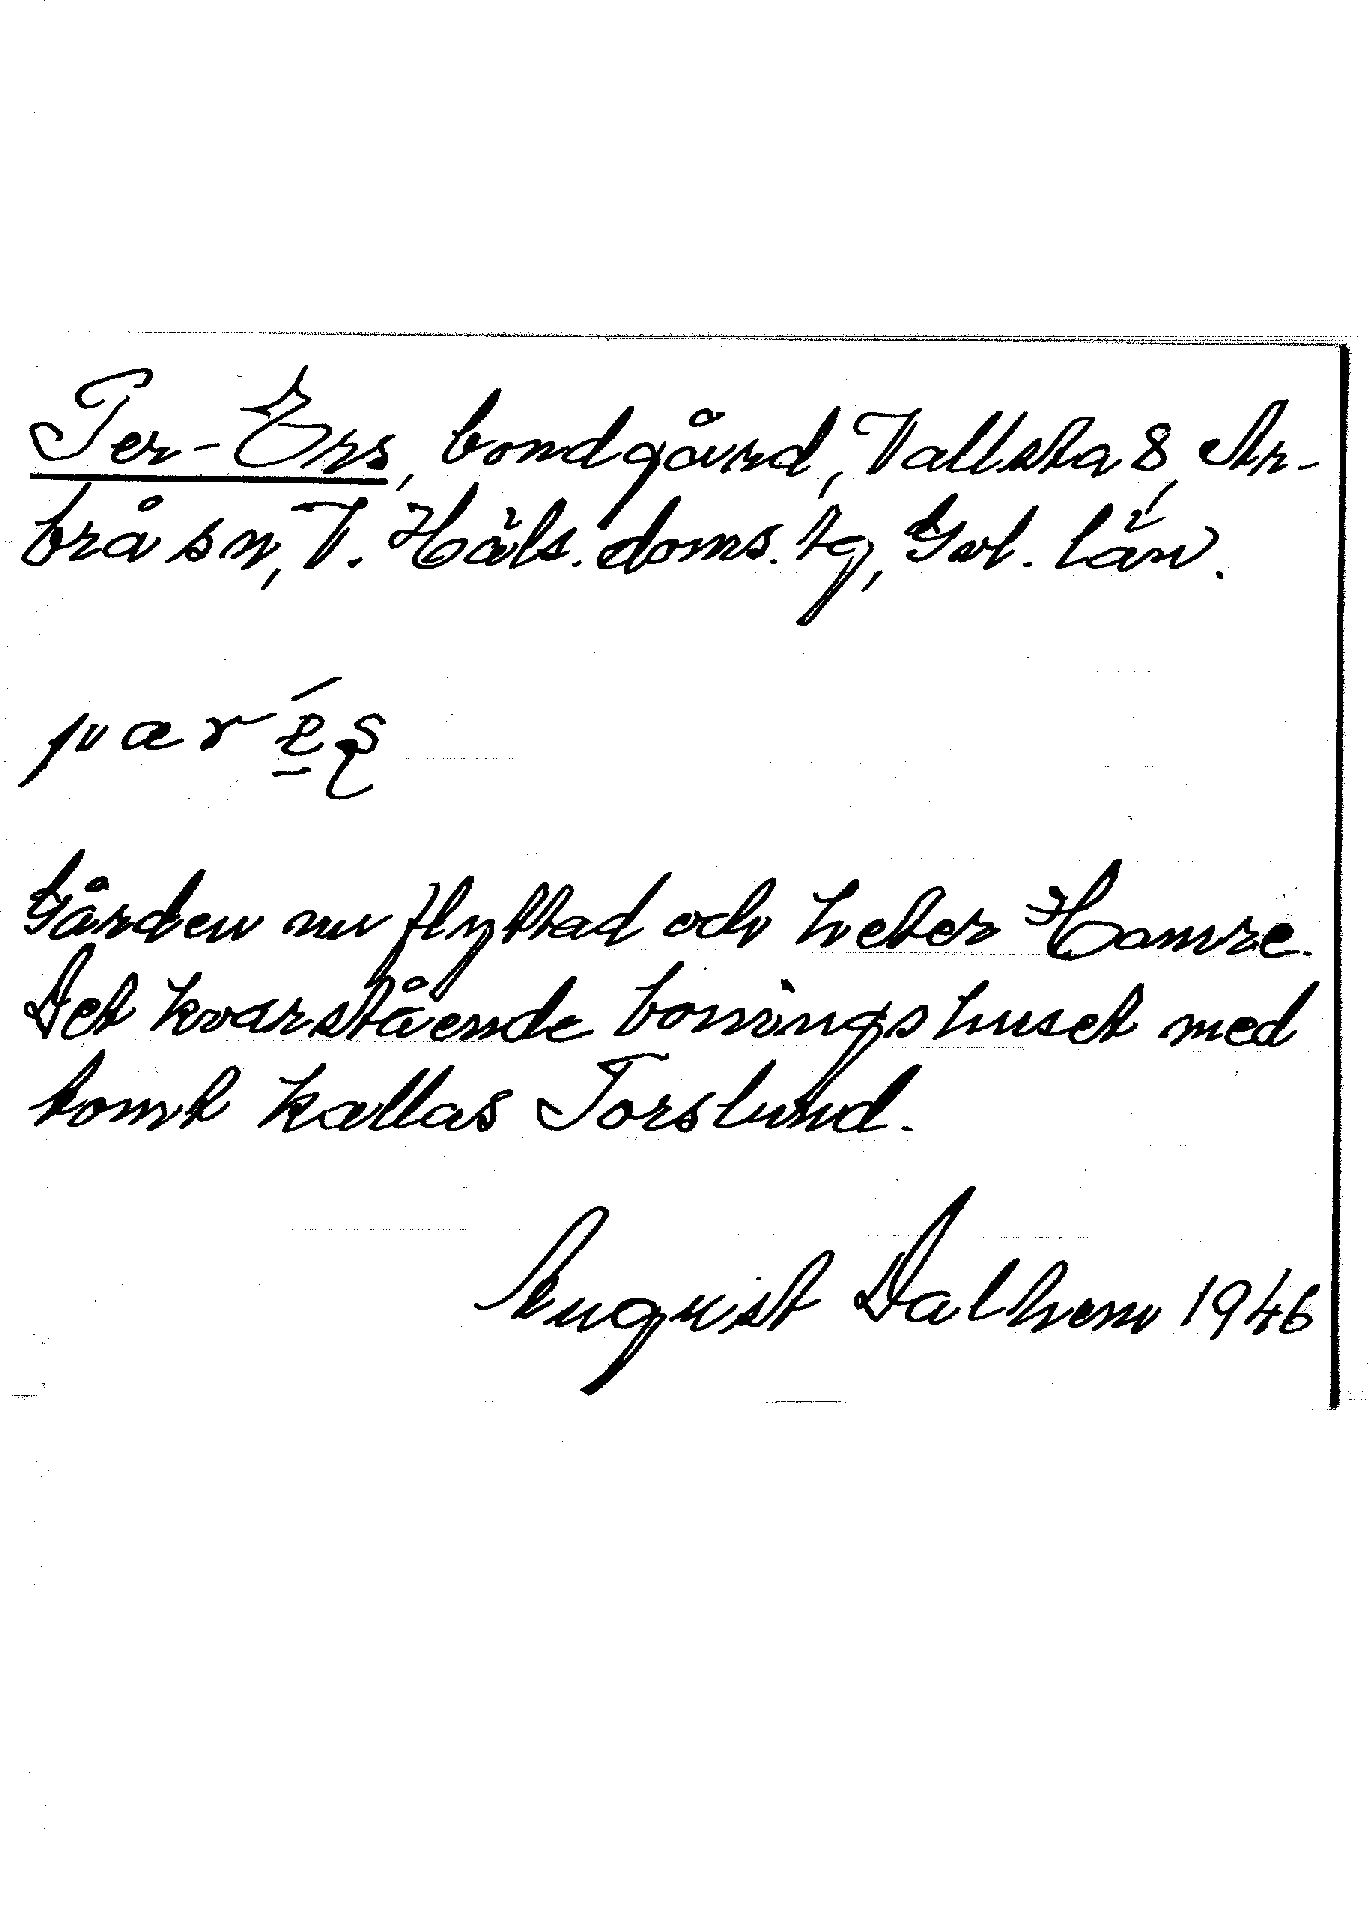 Per-Ers, bondgård, Vallsta 8, Ar-
brå sn, V. Häls. doms. tg, Gvl. län.
Gården nu flyttad och heter Hamre.
Det kvarstående boningshuset med
tomt kallas Torslund.
August Dalhem 1946